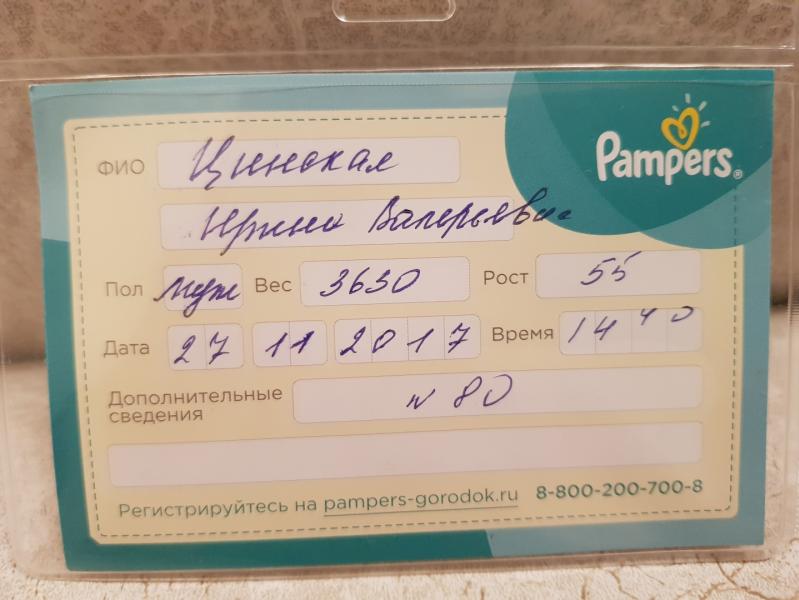 Pampers®
ФИО Цинская
Ирина Валерьевна
Пол муж Вес 3630 Рост 55
Дата 27 11 2017 Время 14 40
Дополнительные сведения N 80
Регистрируйтесь на pampers-gorodok.ru 8-800-200-700-8